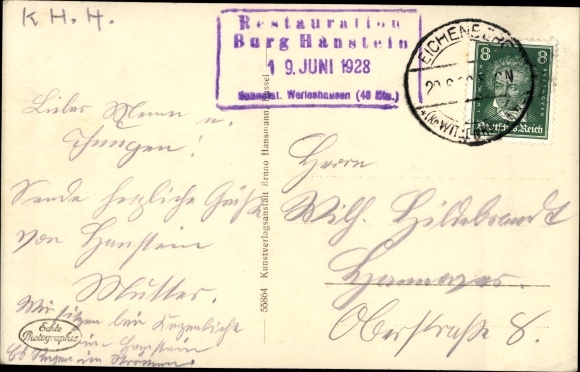 K. H. H.
Restauration
Burg Hanstein
19. JUNI 1928
Bahnstat. Werleshausen (40 Min.)
EICHENBERG
(Kr. WITZENH
8 8
Deutsches Reich
Lieber Mann u.
Jungen!
Sende herzliche Grüße
von Hanstein
Mutter.
Wir sitzen bei
in Hanstein
Es im Strömen.
Echte
Photographie
55864 Kunstverlagsanstalt Bruno Hansmann, Cassel
Herrn
Wilh. Hildebrandt
Hannover.
Oberstraße 8.